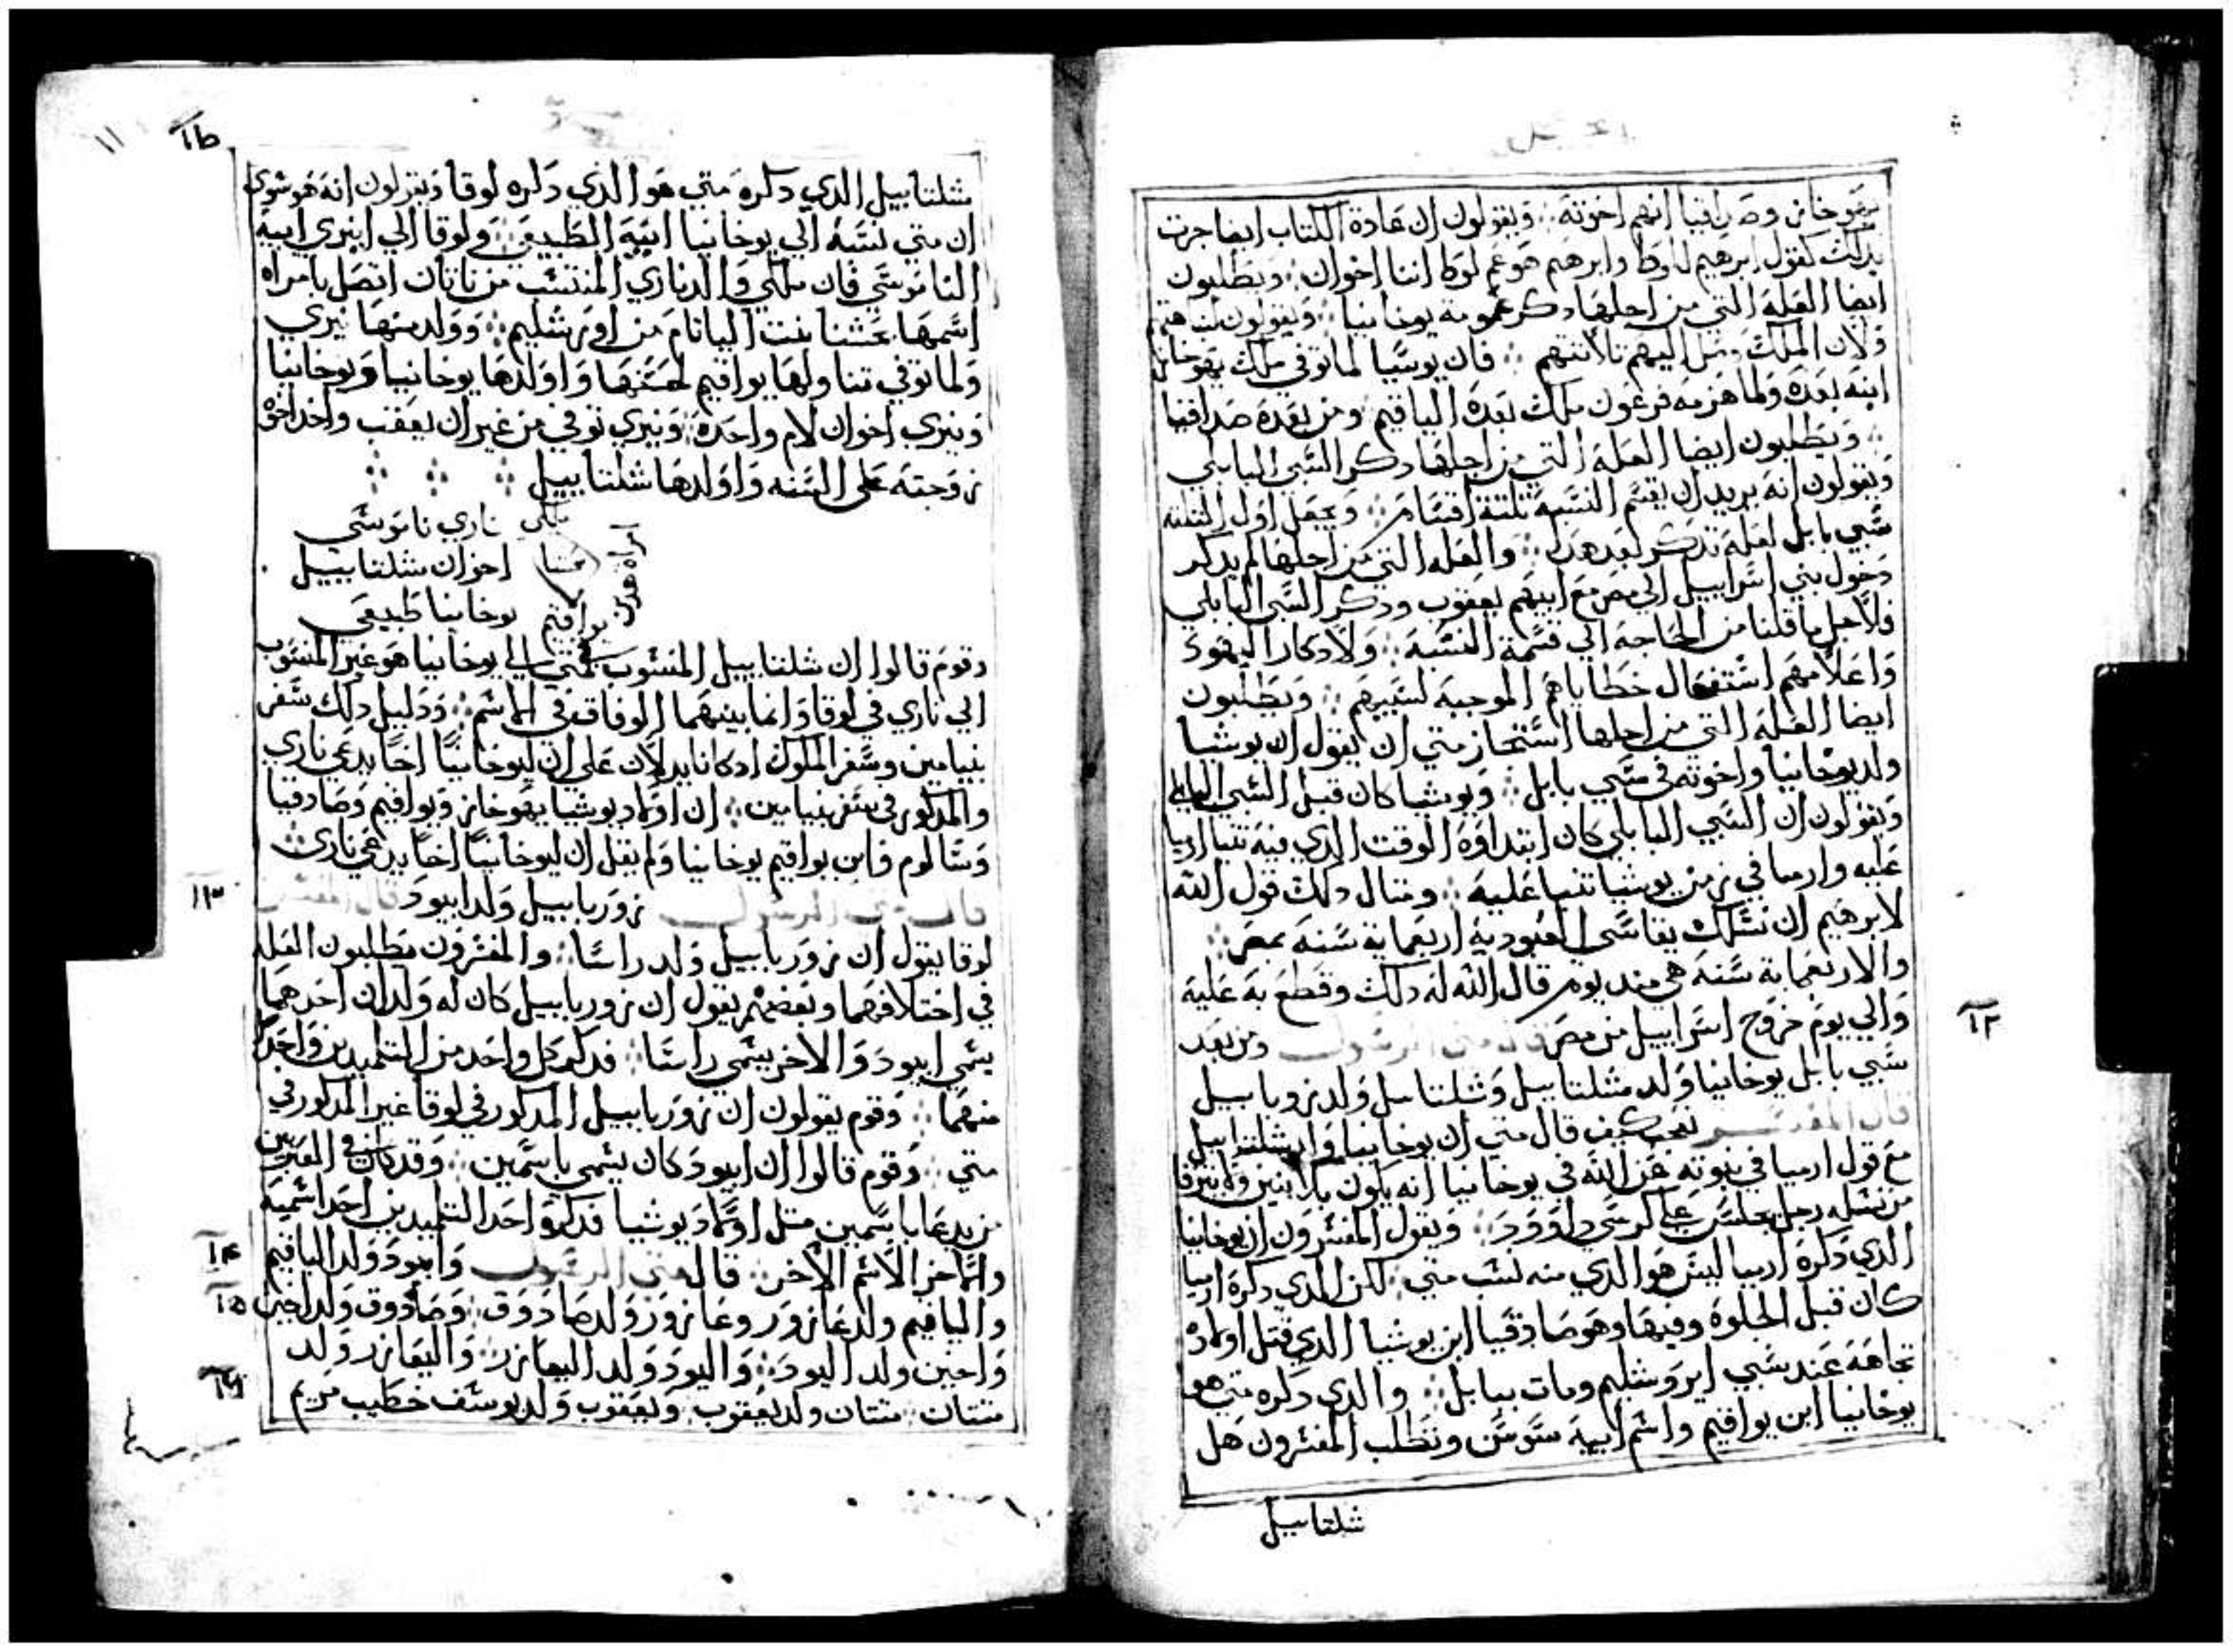 يهوخاز وصدافيا انهم اخوته ܀ ويقولون ان عادة الكتاب ايضا جرت
بذلك كقول ابرهيم للوط وابرهيم هو عم لوط اننا اخوان ܀ ويطلبون
ايضا العله التي من اجلها ذكر عمومة يوخانيا ܀ ويقولون
ولان الملك وصل اليهم ثلاثتهم ܀ فان يوشيا لما توفي ملك يهوخاز
ابنه بعده ولما هزمه فرعون ملك بعده الياقيم ومن بعده صدافيا
܀ ويطلبون ايضا العله التي من اجلها ذكر السبي البابلي
ويقولون انه يريد ان يقسم النسبة تلتة اقسام ܀ ويجعل اول التلته
سبي بابل لعله تذكر بعد هذا ܀ والعله التي من اجلها لم يذكر
دخول بني اسراييل الي مصر مع ابيهم يعقوب وذكر السبي البابلي
فلاجل ما قلنا من الحاجه الي قسمة النسبة ܀ ولادكار اليهود
واعلامهم استفعال خطاياهم الموجبة لسبيهم ܀ ويطلبون
ايضا العله التي من اجلها استجاز متي ان يقول ان يوشيا
ولد يوخانيا واخوته في سبي بابل ܀ ويوشيا كان قبل السبي البابلي
ويقولون ان السبي البابلي كان ابتداوه الوقت الذي فيه تنبا ارميا
عليه وارميا في زمن يوشيا تنبا عليه ܀ ومثال ذلك قول الله
لابرهيم ان نسلك يقاسي العبودية اربعماية سنة بمصر ܀
والاربعماية سنة هي منذ يوم قال الله له ذلك وقطع به عليه
والي يوم خروج اسراييل من مصر قال متي الرسول ومن بعد
سبي بابل يوخانيا ولد شلتاييل وشلتاييل ولد زوربابيل
قال المفسر نعجب كيف قال متي ان يوخانيا واد شلتاييل
مع قول ارميا في نبوته عن الله في يوخانيا انه يكون بلا بنين ولا يترقا
من نسله رجل يجلس علي كرسي داوود ܀ ويقول المفسرون ان يوخانيا
الذي ذكره ارميا ليس هو الذي منه نسب متي لكن الذي ذكره ارميا
كان قبل الجلوه وفيها وهو صادقيا ابن يوشيا الذي قتل اولاده
تجاهه عند سبي ايروشليم ومات ببابل ܀ والذي ذكره متي هو
يوخانيا ابن يواقيم واسم ابيه شوشن ونطلب المفسرون هل
شلتاييل
شلتاييل الذي ذكره متي هو الذي ذكره لوقا ويقولون انه هو سوي
ان متي نسبه الي يوخانيا ابيه الطبيعي ܀ ولوقا الي ابنيري ابيه
الناموسي فان ملكي والد ناري المنتسب من ناتان اتصل بامراه
اسمها عشنا بنت اليانام من اورشليم ܀ وولد منها نيري
ولما توفي تناولها يواقيم لحسنها واولدها يوخانيا ويوخانيا
ونيري اخوان لام واحده ܀ ونيري توفي من غير ان يعقب واخد اخوه
زوجته علي السنه واولدها شلتاييل ܀
ملكي ناري ناموسي
عشنا اخوان شلتاييل
امراة هدين
يواقيم يوخانيا طبيعي
وقوم قالوا ان شلتاييل المنسوب في متي الي يوخانيا هو غير المنسوب
الي ناري في لوقا وانما بينهما الوفاق في الاسم ܀ ودليل ذلك سفر
بنيامين وسفر الملوك اذ كانا يدلان علي ان ليوخانيا اخا يدعي ناري
والمذكور في سفر بنيامين ܀ ان اولاد يوشيا يهوخاز ويواقيم وصادقيا
وسالوم وابن يواقيم يوخانيا ولم يقل ان ليوخانيا اخا يدعي ناري
قال متي الرسول زوربابيل ولد ابيود قال المفسر
لوقا يقول ان زوربابيل ولد راسا ܀ والمفسرون يطلبون العله
في اختلافهما وبعضهم يقول ان زوربابيل كان له ولدان احدهما
يسمي ابيود والاخر يسمي راسا ܀ فذكر كل واحد من التلميذين واحدا
منهما ܀ وقوم يقولون ان زوربابيل المذكور في لوقا غير المذكور في
متي ܀ وقوم قالوا ان ابيود كان يسمي باسمين ܀ وقد كان في العبريين
من يدعا باسمين مثل اولاد يوشيا فذكر احد التلميذين احد اسميه
والاخر الاسم الاخر ܀ قال متي الرسول وابيود ولد الياقيم
والياقيم ولد عازور وعازور ولد صادوق ܀ وصادوق ولد اخين
واخين ولد اليود ܀ واليود ولد اليعازر ܀ واليعازر ولد
متتان ܀ متتان ولد يعقوب ܀ ويعقوب ولد يوسف خطيب مريم